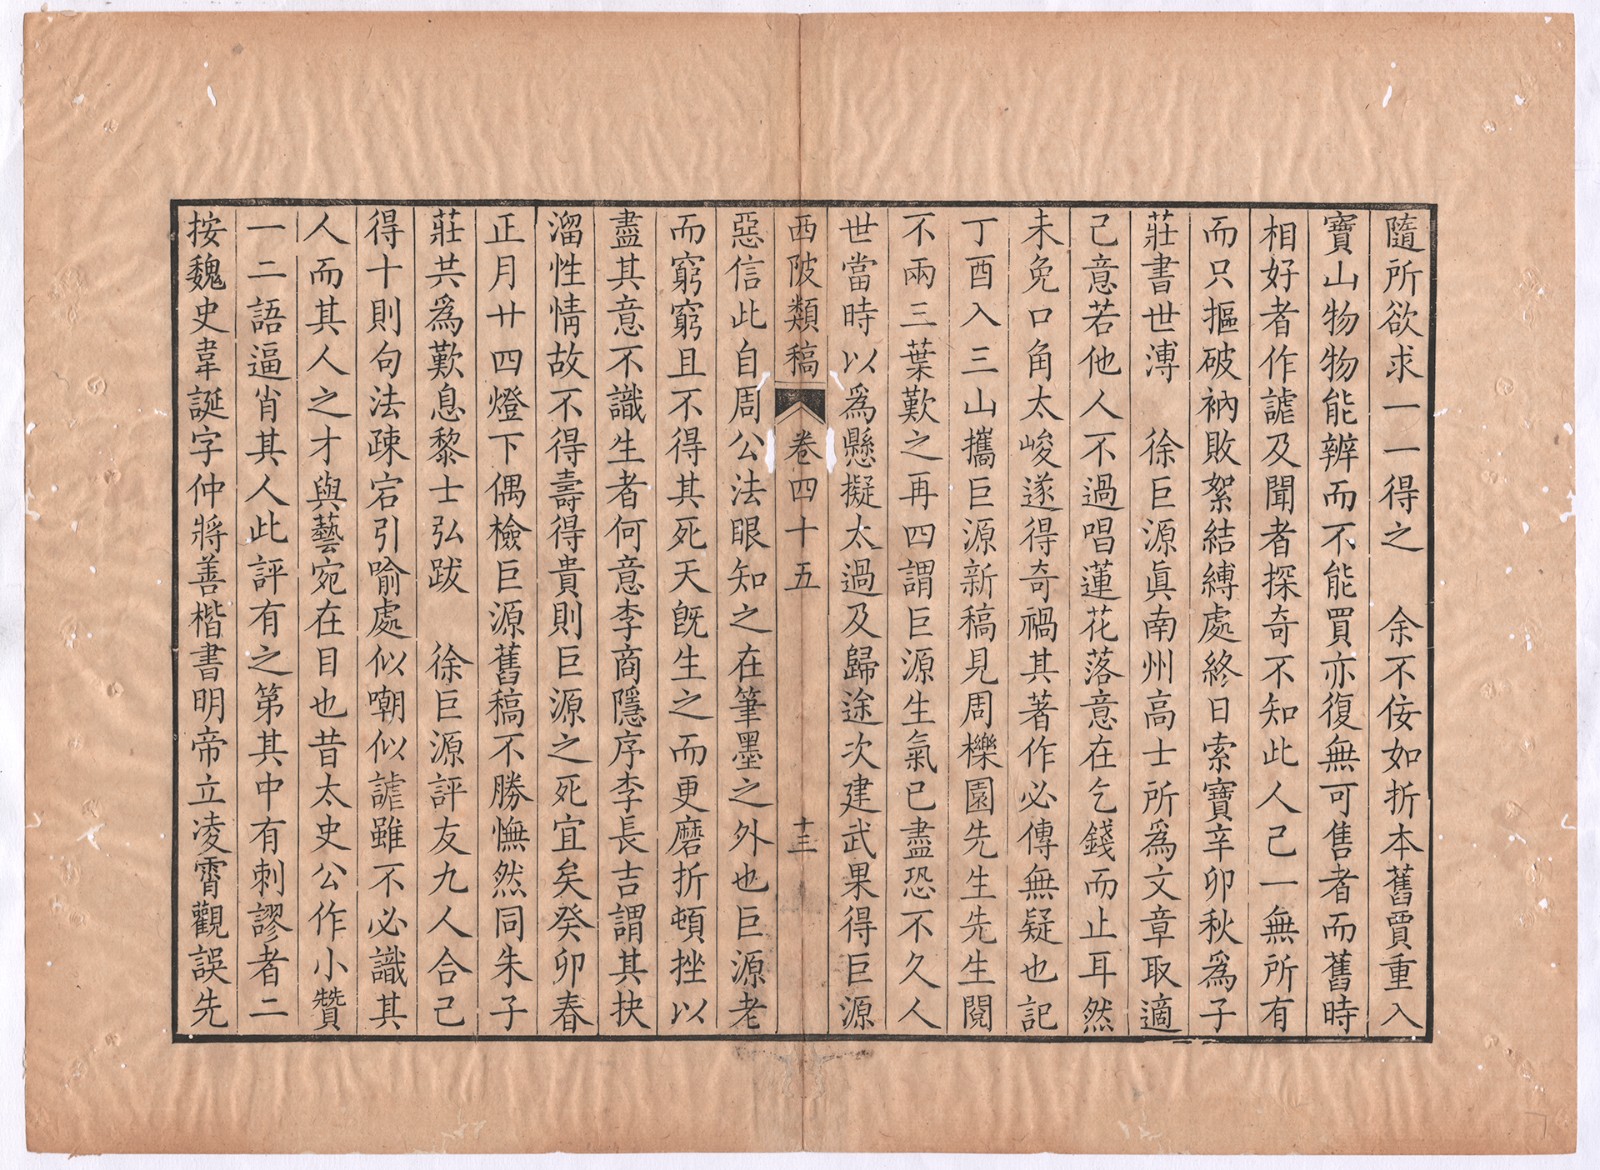 隨所欲求一一得之　余不佞如折本舊賈重入
寶山物物能辨而不能買亦復無可售者而舊時
相好者作謔及聞者探奇不知此人己一無所有
而只摳破衲敗絮結縛處終日索寶辛卯秋爲子
莊書世溥　徐巨源眞南州高士所爲文章取適
己意若他人不過唱蓮花落意在乞錢而止耳然
未免口角太峻遂得奇禍其著作必傳無疑也記
丁酉入三山攜巨源新稿見周櫟園先生先生閱
不兩三葉歎之再四謂巨源生氣已盡恐不久人
世當時以爲懸擬太過及歸途次建武果得巨源
西陂類稿　卷四十五　十三
惡信此自周公法眼知之在筆墨之外也巨源老
而窮窮且不得其死天旣生之而更磨折頓挫以
盡其意不識生者何意李商隱序李長吉謂其抉
溜性情故不得壽得貴則巨源之死宜矣癸卯春
正月廿四燈下偶檢巨源舊稿不勝憮然同朱子
莊共爲歎息黎士弘跋　徐巨源評友九人合己
得十則句法疎宕引喻處似嘲似謔雖不必識其
人而其人之才與藝宛在目也昔太史公作小贊
一二語逼肖其人此評有之第其中有刺謬者二
按魏史韋誕字仲將善楷書明帝立凌霄觀誤先